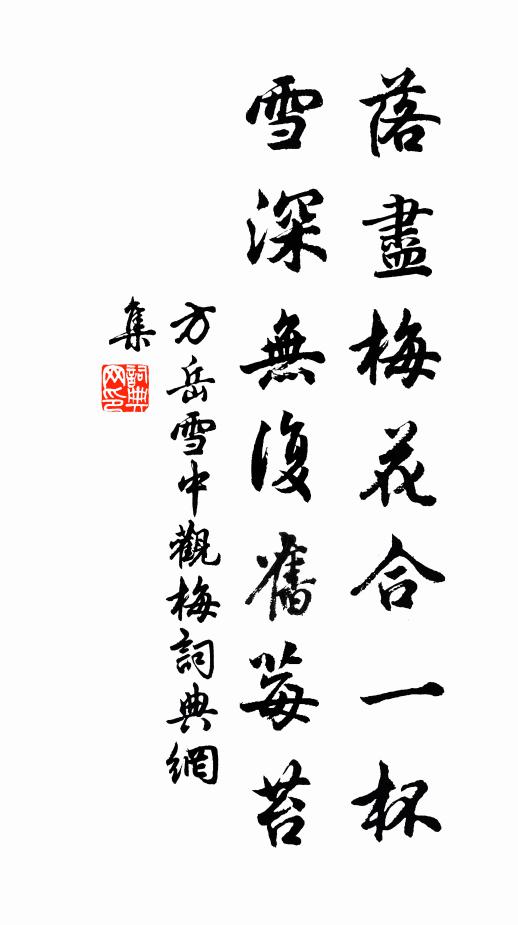 落盡梅花合一杯
雪深無復舊莓苔
方岳雪中觀梅詞典網
集
詞典网印